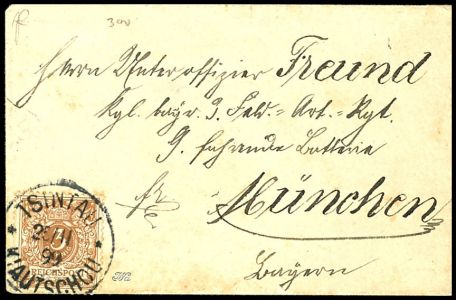 300
Herrn Unteroffizier Freund
Kgl. bayr. 3. Feld.-Art.-Rgt.
9. fahrende Batterie
München
Bayern
TSINTAU
99
KIAUTSCHOU
REICHSPOST